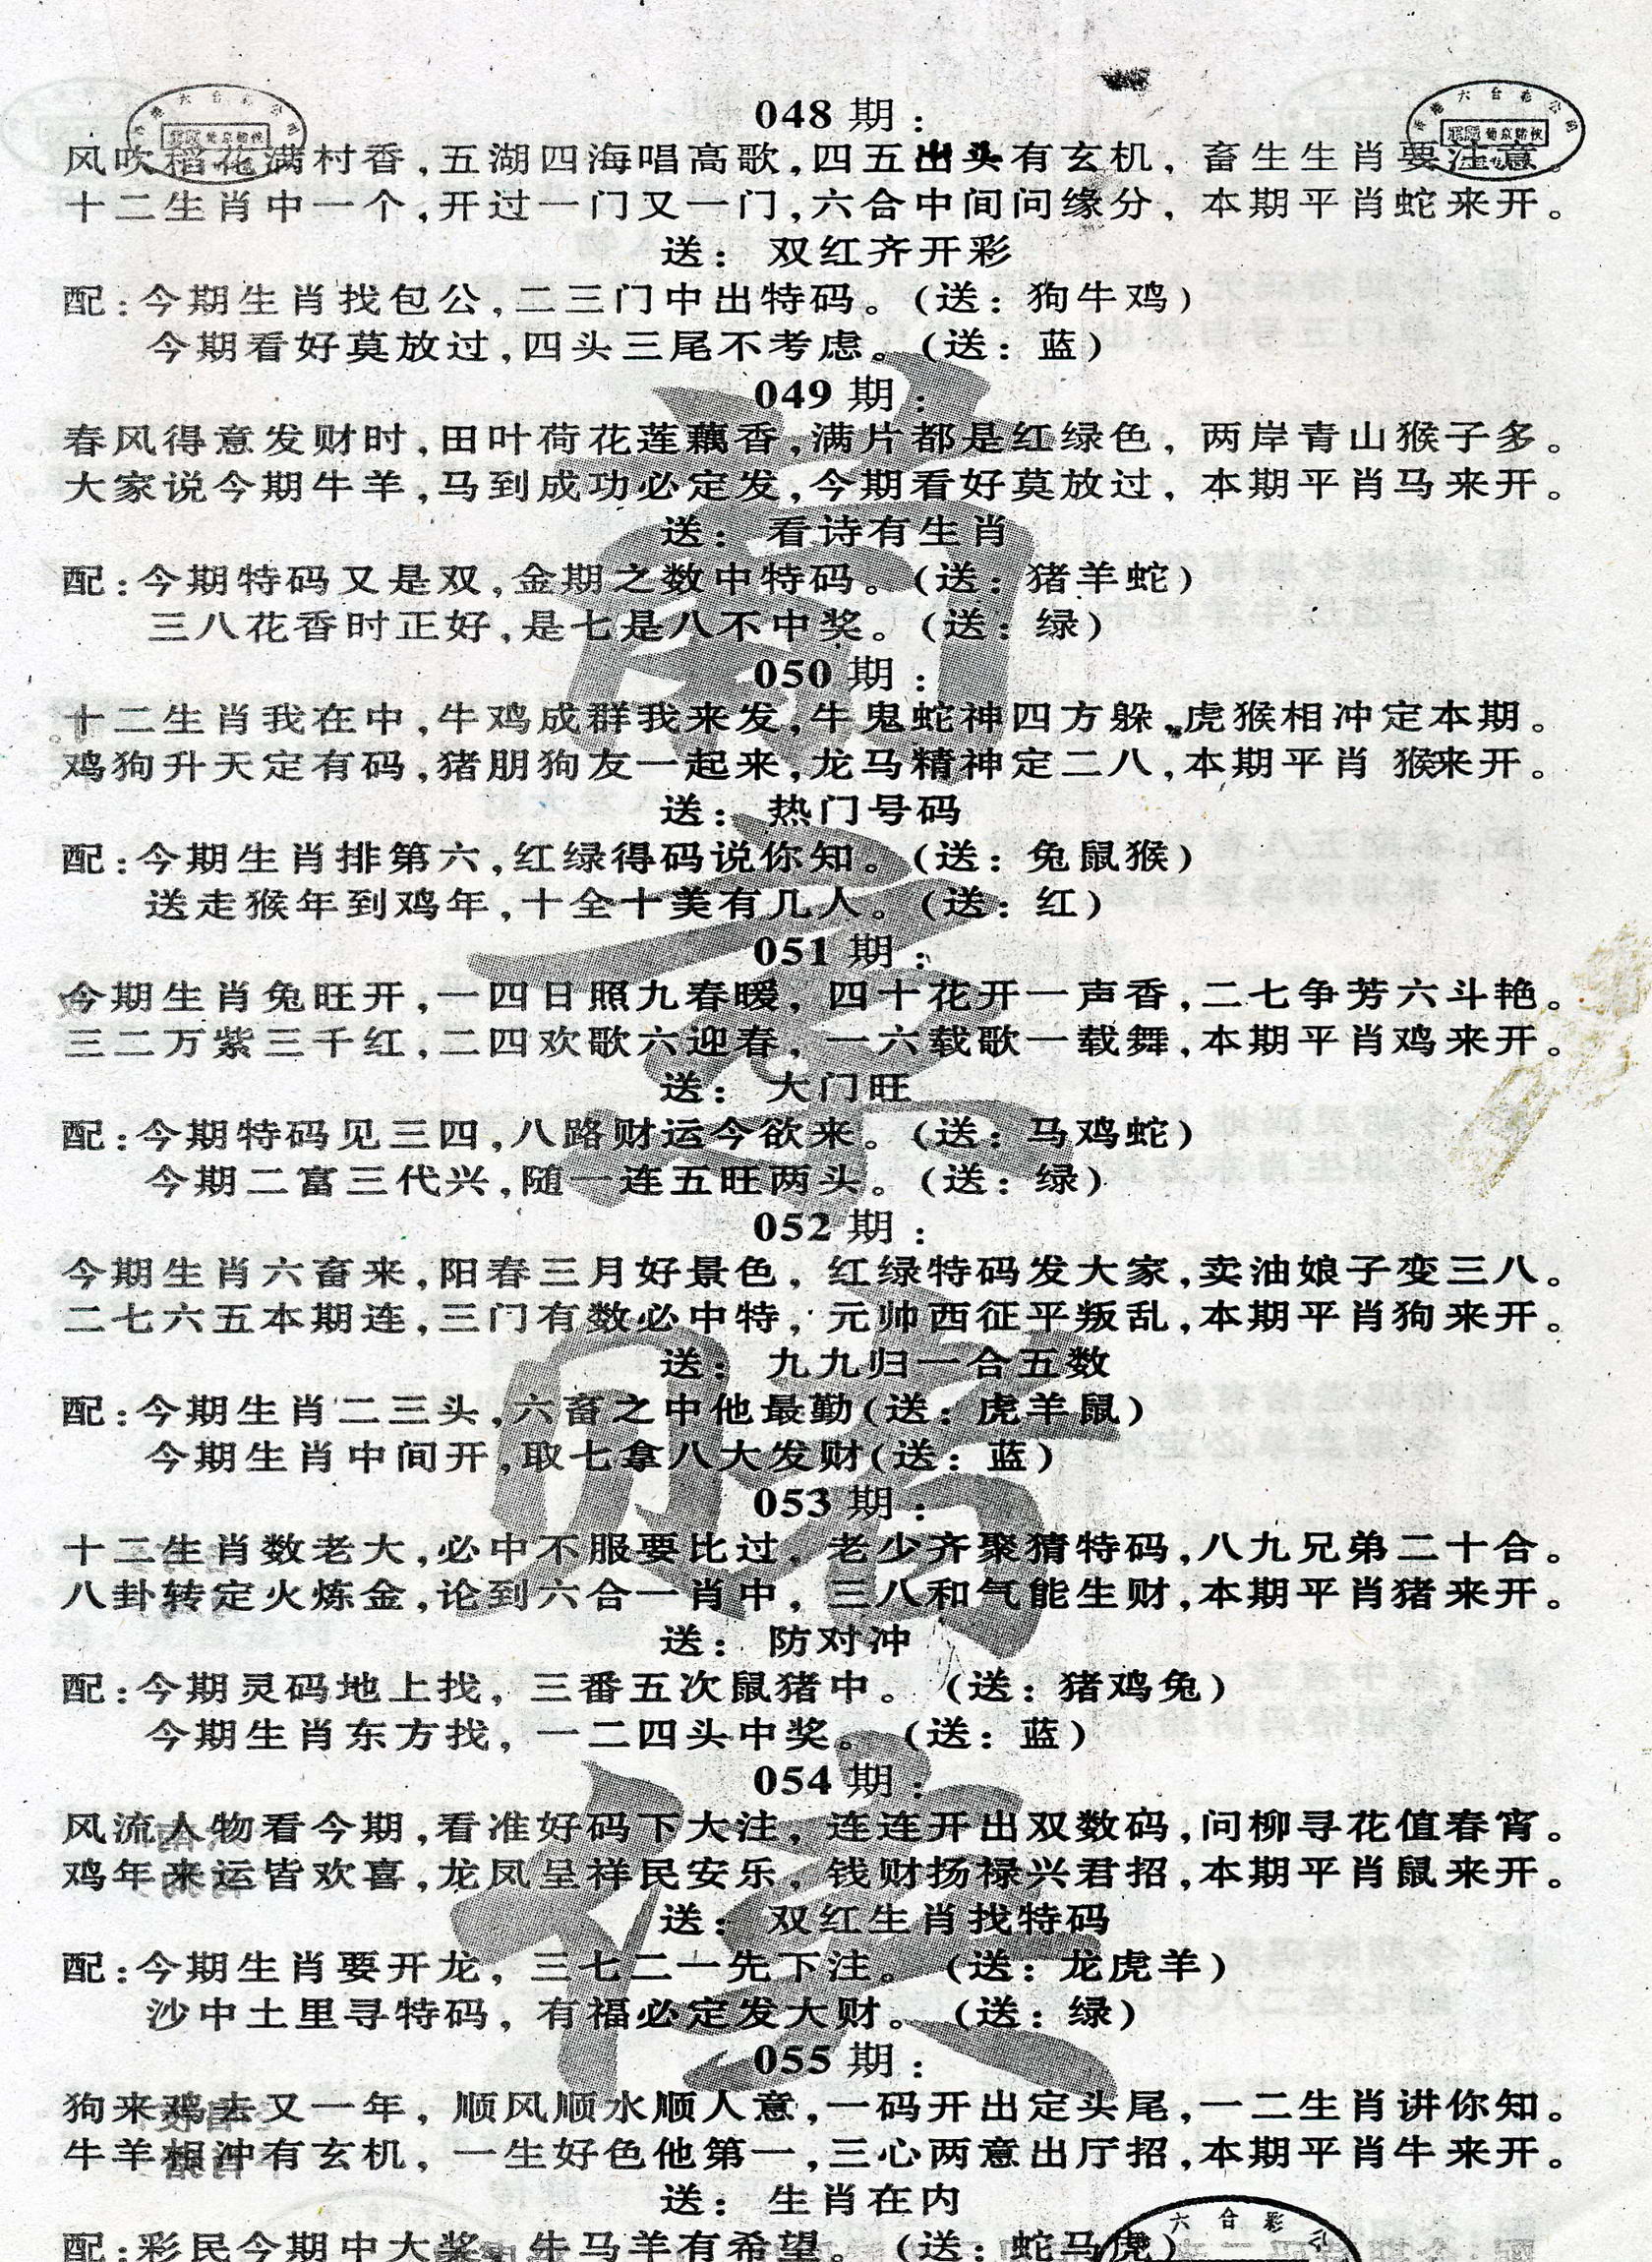 048期：
风吹稻花满村香,五湖四海唱高歌,四五出头有玄机,畜生生肖要注意。
十二生肖中一个,开过一门又一门,六合中间问缘分,本期平肖蛇来开。
送：双红齐开彩
配:今期生肖找包公,二三门中出特码。(送：狗牛鸡)
今期看好莫放过,四头三尾不考虑。(送：蓝)
049期：
春风得意发财时,田叶荷花莲藕香,满片都是红绿色,两岸青山猴子多。
大家说今期牛羊,马到成功必定发,今期看好莫放过,本期平肖马来开。
送：看诗有生肖
配:今期特码又是双,金期之数中特码。(送：猪羊蛇)
三八花香时正好,是七是八不中奖。(送：绿)
050期：
十二生肖我在中,牛鸡成群我来发,牛鬼蛇神四方躲,虎猴相冲定本期。
鸡狗升天定有码,猪朋狗友一起来,龙马精神定二八,本期平肖 猴来开。
送：热门号码
配:今期生肖排第六,红绿得码说你知。(送：兔鼠猴)
送走猴年到鸡年,十全十美有几人。(送：红)
051期：
今期生肖兔旺开,一四日照九春暖,四十花开一声香,二七争芳六斗艳。
三二万紫三千红,二四欢歌六迎春,一六载歌一载舞,本期平肖鸡来开。
送：大门旺
配:今期特码见三四,八路财运今欲来。(送：马鸡蛇)
今期二富三代兴,随一连五旺两头。(送：绿)
052期：
今期生肖六畜来,阳春三月好景色,红绿特码发大家,卖油娘子变三八。
二七六五本期连,三门有数必中特,元帅西征平叛乱,本期平肖狗来开。
送：九九归一合五数
配:今期生肖二三头,六畜之中他最勤(送：虎羊鼠)
今期生肖中间开,取七拿八大发财(送：蓝)
053期：
十二生肖数老大,必中不服要比过,老少齐聚猜特码,八九兄弟二十合。
八卦转定火炼金,论到六合一肖中,三八和气能生财,本期平肖猪来开。
送：防对冲
配:今期灵码地上找,三番五次鼠猪中。(送：猪鸡兔)
今期生肖东方找,一二四头中奖。(送：蓝)
054期：
风流人物看今期,看准好码下大注,连连开出双数码,问柳寻花值春宵。
鸡年来运皆欢喜,龙凤呈祥民安乐,钱财扬禄兴君招,本期平肖鼠来开。
送：双红生肖找特码
配:今期生肖要开龙,三七二一先下注。(送：龙虎羊)
沙中土里寻特码,有福必定发大财。(送：绿)
055期：
狗来鸡去又一年,顺风顺水顺人意,一码开出定头尾,一二生肖讲你知。
牛羊相冲有玄机,一生好色他第一,三心两意出厅招,本期平肖牛来开。
送：生肖在内
配:彩民今期中大奖,牛马羊有希望。(送：蛇马虎)
六合彩公